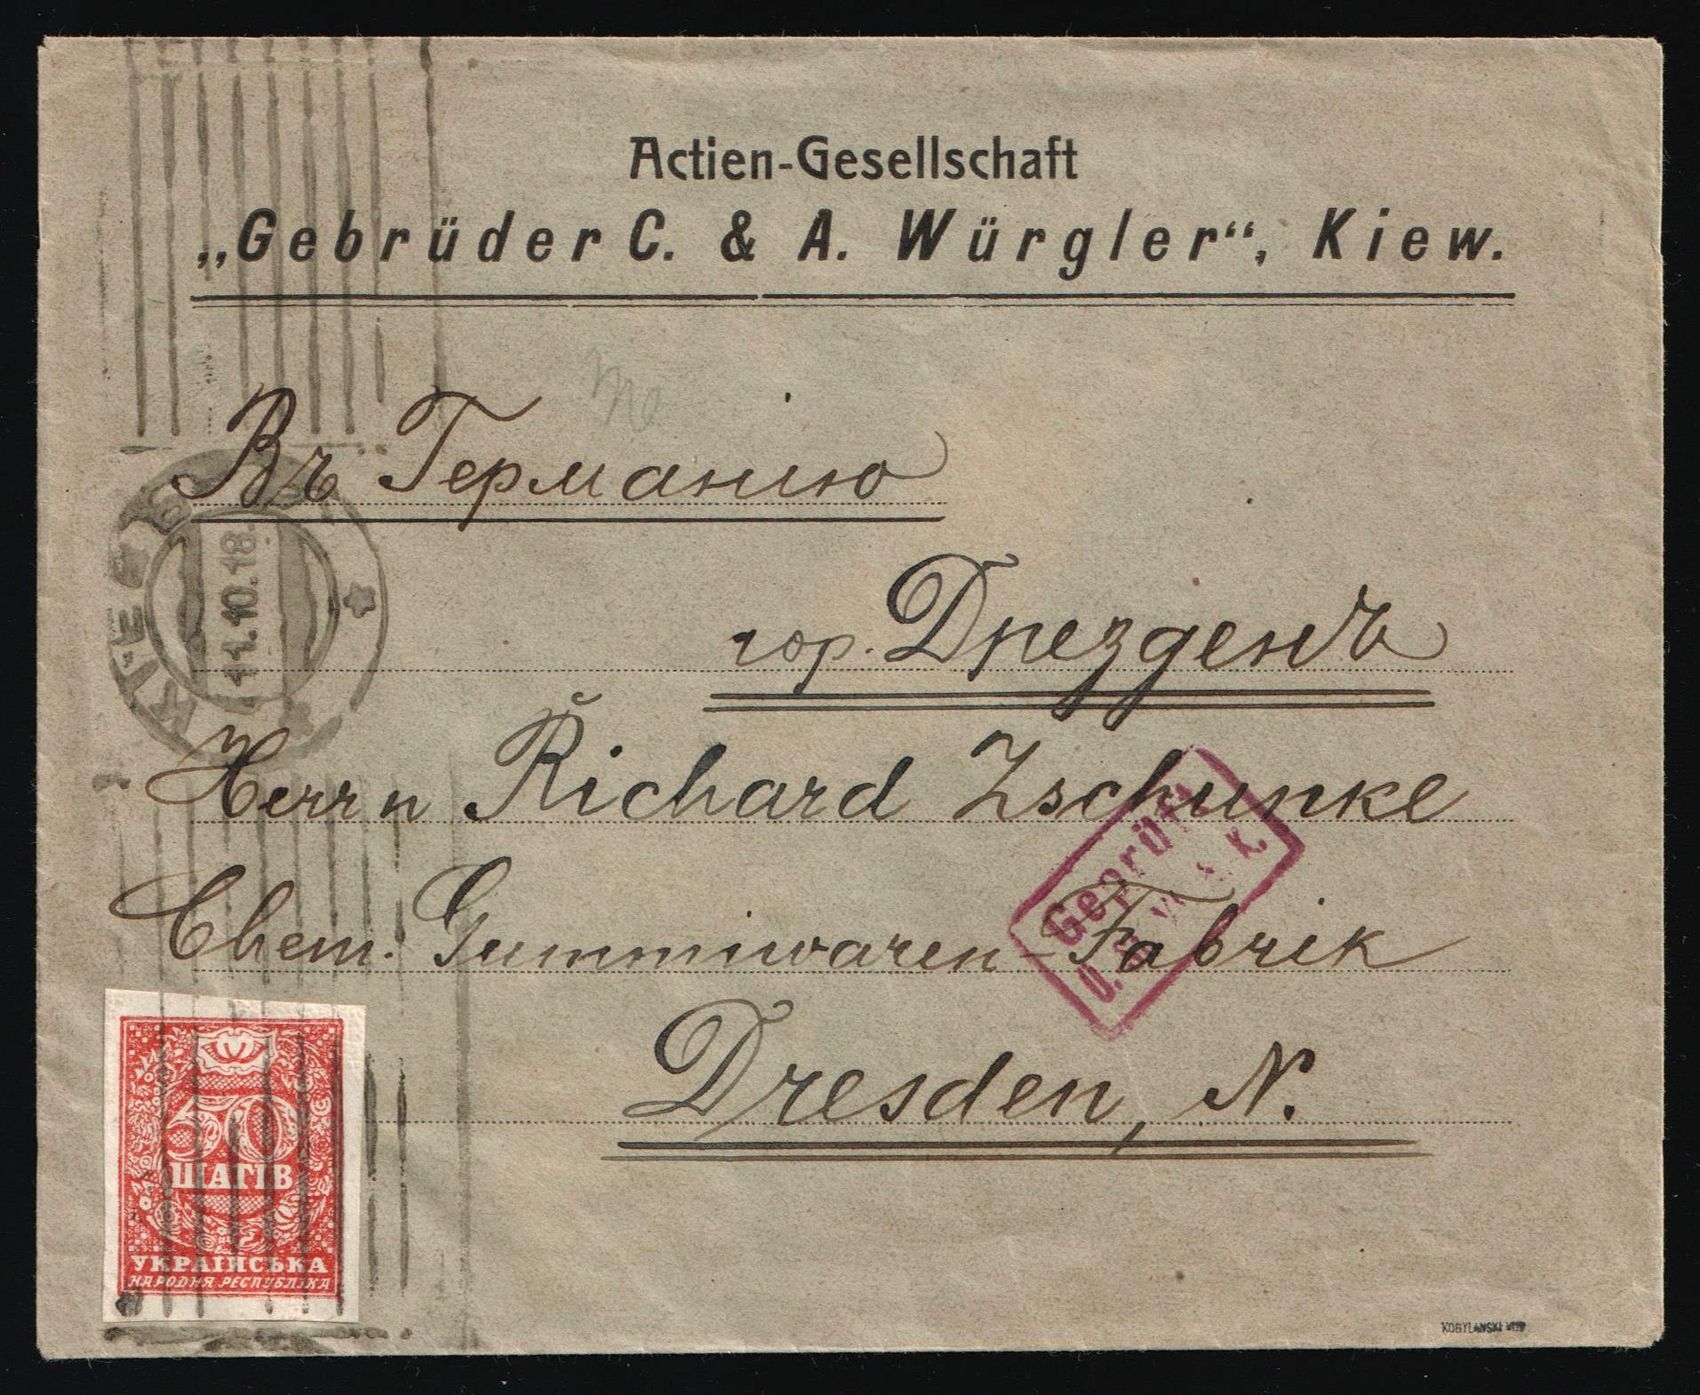 Actien-Gesellschaft
„Gebrüder C. & A. Würgler“, Kiew.
Въ Германию
гор. Дрезденъ
Herrn Richard Zschunke
Chem. Gummiwaren-Fabrik
Dresden, N.
КІЕВЪ
11.10.18
Geprüft
50
ШАГІВ
УКРАЇНСЬКА
НАРОДНЯ РЕСПУБЛІКА
KOBYLANSKI